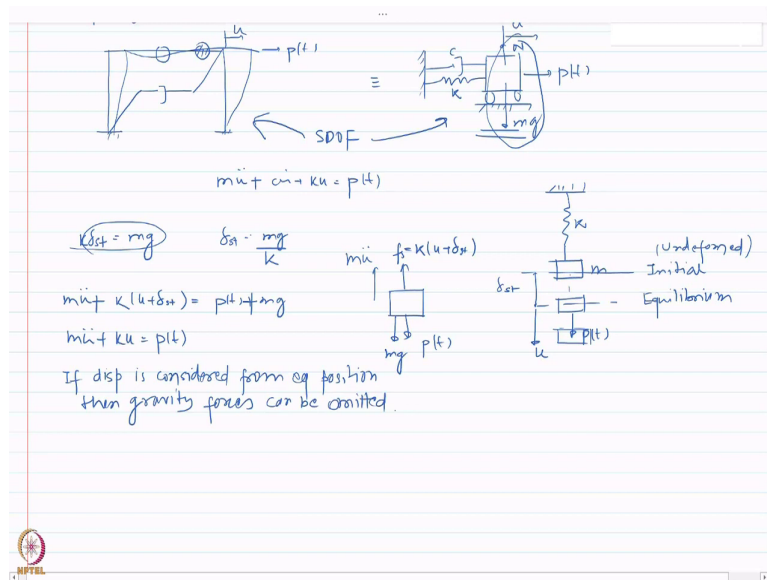 ...
u
p(t)
c
K
≡
u
N
p(t)
mg
SDOF
mü + cu̇ + ku = p(t)
Kδst = mg
δst = mg/K
mü
fs = K(u+δst)
mg
p(t)
K
m
(Undeformed)
Initial
δst
Equilibrium
p(t)
u
mü + K(u+δst) = p(t)+mg
mü + ku = p(t)
If disp is considered from eq position
then gravity forces can be omitted.
NPTEL